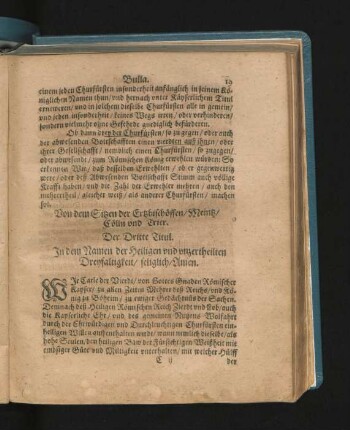 Bulla. 10
einem jeden Churfürsten insonderheit anfänglich in seinem Kö-
niglichen Namen thun / vnd hernach vnter Käyserlichem Titul
ernewern / vnd in solchem dieselbe Churfürsten alle in gemein /
vnd jeden insonderheit / keines Wegs irren / oder verhindern /
sondern vielmehr ohne Gefehrde gnediglich befürdern.
Ob dann drey der Churfürsten / so zu gegen / oder auch
der abwesenden Bottschafften einen vndter auß jhnen / oder
jhrer Gesellschafft / nemblich einen Churfürsten / so zugegen /
oder abwesend / zum Römischen König erwehlen würden / So
erkennen Wir / daß desselben Erwehlten / ob er gegenwertig
were / oder deß Abwesenden Bottschafft Stimm auch völlige
Krafft haben / vnd die Zahl der Erwehler mehren / auch den
mehrertheil / gleicher weiß / als anderer Churfürsten / machen
sol.
Von dem Sitzen der Ertzbischöffen / Meintz /
Cölln vnd Trier.
Der Dritte Titul.
In dem Namen der Heiligen vnd vnzertheilten
Dreyfaltigkeit / seliglich / Amen.
WIr Carle der Vierdt / von Gottes Gnaden Römischer
Käyser / zu allen Zeiten Mehrer deß Reichs / vnd Kö-
nig zu Böheim / zu ewiger Gedächtnüs der Sachen.
Demnach deß Heiligen Römischen Reich Zierde vnd Lob / auch
die Käyserliche Ehr / vnd des gemeinen Nutzens Wolfahrt
durch der Ehrwürdigen vnd Durchleuchtigen Churfürsten ein-
helligen Willen auffenthalten wirdt / wann nemlich dieselbe / als
hohe Seulen / den heiligen Baw der Fürsichtigen Weißheit mit
embsiger Güte vnd Miltigkeit vnterhalten / mit welcher Hülff
C ij den